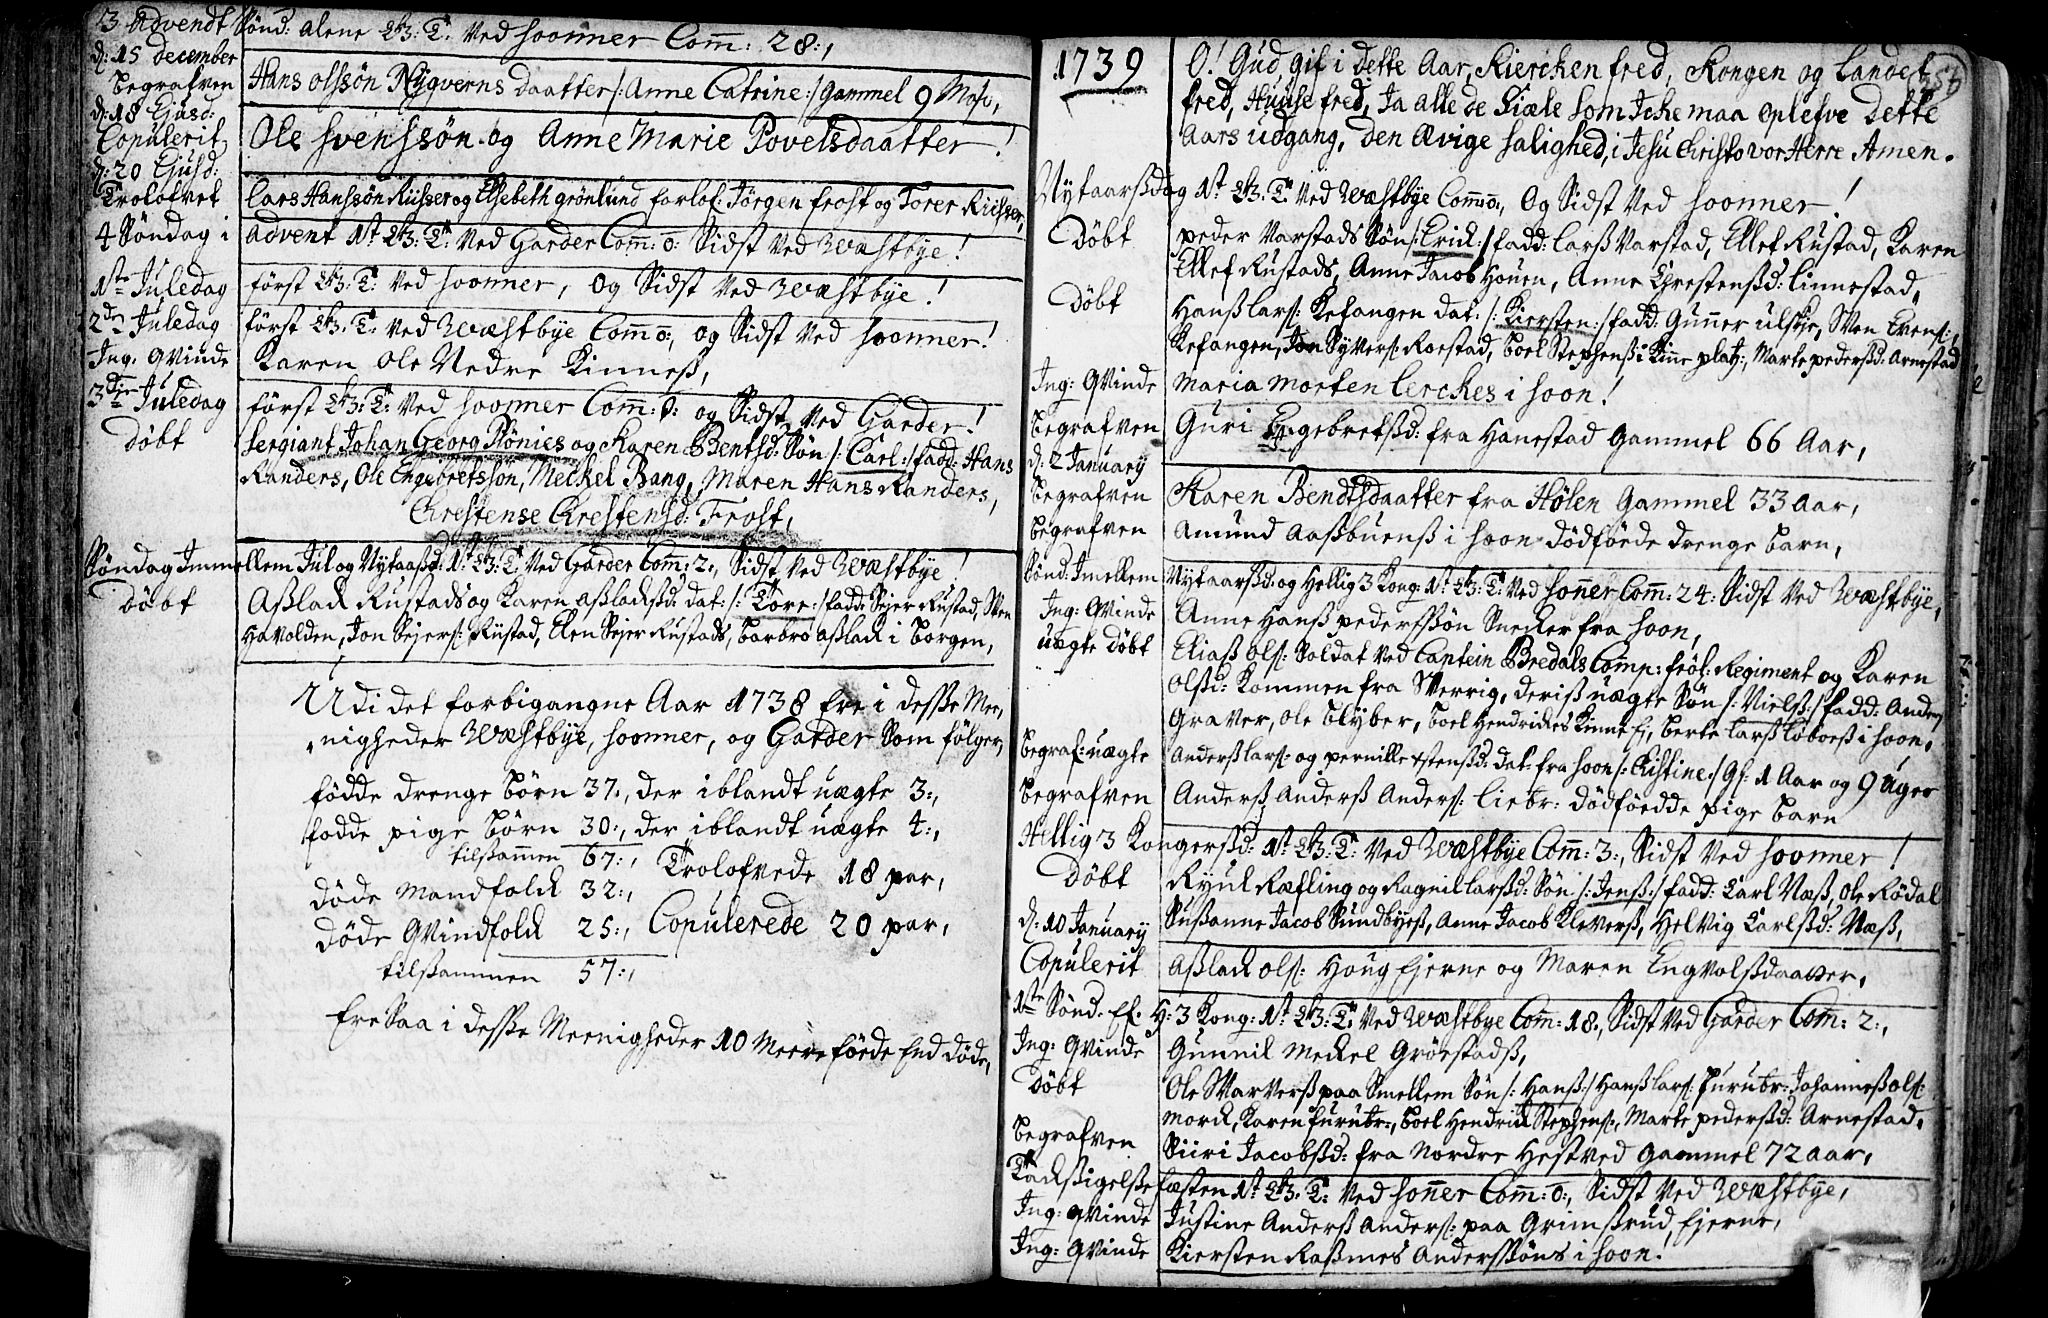 3 Advendt Sönd: alene Pr: T: Ved Soonner Com: 28:,
d: 15 December
begrafven Hans olssön Nygverns daatter /: Anne Catrine :/ gammel 9 Mos:,
d: 18 Ejusd:
Copulerit Ole Svenssön og Anne Marie Povelsdaatter!
d: 20 Ejusd:
Trolofvet Lars Hanssön Riiser og Elsebeth grönlund forlof: Jörgen frost og Torer Riiser,
4 Söndag i advent 1st Pr: T: Ved Garder Com: 0: Sidst Ved Wæstbÿe!
1ste Juledag först Pr: T: Ved Soonner, Og Sidst Ved Wæstbÿe!
2den Juledag först Pr: T: Ved Wæstbÿe Com: 0:, og Sidst Ved Soonner!
Ing: Qvinde Karen Ole Nedre Kinness,
3die Juledag först Pr: T: Ved Soonner Com: 0: og Sidst Ved Garder!
Döbt Sergiant Johan Georg Könies og Karen Bentsd: Sön /: Carl :/ fadd: Hans
Randers, Ole Engebretssön, Meckel Bang, Maren Hans Randers,
Chrestense Chrestensd: Frost,
Söndag Imellem Jul og Nytaarsd: 1st Pr: T: Ved Garder Com: 2:, Sidst Ved Wæstbÿe!
Döbt Asslack Rustads og Karen asslacksd: dat: /: Tore :/ fadd: Sejer Rustad, Sven
Havolden, Jon Sejers: Rustad, Elen Sejer Rustads, barbro asslack i borgen,
Udi det forbigangne Aar 1738 Ere i desse Mee,,
,,nigheder Wæstbÿe, Soonner, og Garder Som fölger,
födde drenge börn 37:, der iblandt uægte 3:,
födde pige börn 30:, der iblandt uægte 4:,
tilsammen 67:, Trolofvede 18 par,
döde Mandfolck 32:,
döde Qvindfolck 25:, Copulerede 20 par,
tilsammen 57:,
Ere Saa i desse Meenigheder 10 Meere föede End döde,
1739 O! Gud gif i dette Aar, Kiercken fred, Kongen og Landet
fred, Huuse fred, Ja alle de Siæle Som Icke maa opleve Dette
Aars udgang, den Ævige Salighed, i Jesu Christo vor Herre Amen.
Nytaarsdag 1st Pr: T: Ved Wæstbye Com: 0:, Og Sidst Ved Soonner!
Döbt peder Varstads Sön /: Erick :/ fadd: Lars Varstad, Ellef Rustad, Karen
Ellef Rustads, Anne Jacob Houen, Anne Chrestensd: Linnestad,
Döbt Hans Lars: Kefangen dat: /: Kiersten :/ fadd: Gunner ulskje, Sven Evens:,
Kefangen, Jon Syvers: Roestad, boel Stephens i Kinne platz:, Marte pedersd: Arnestad
Ing: Qvinde Maria Morten Lerckes i Soon!
begrafven Guri Engebretsd: fra Hanestad gammel 66 Aar,
d: 2 January
begrafven Karen Bendtsdaatter fra Hölen gammel 33 aar,
begrafven Amund Aasbuens i Soon dödföede drenge barn,
Sönd: Imellem Nytaarsd: og Hellig 3 Kong: 1st Pr: T: Ved Sonner Com: 24: Sidst Ved Wæstbÿe,
Ing: Qvinde Anne Hans pederssön Snecker fra Soon,
uægte Döbt Elias ols: Soldat Ved Captein Bredals Comp: fröl: Regiment og Karen
olsd: Kommen fra Sverrig, deris uægte Sön /: Niels :/ fadd: Anders
Graver, Ole blyber, boel Hendrickes Kinne Ej, berte Lars Loboes i Soon,
begraf: uægte Anders Lars: og pernille xstensd: dat: fra Soon /: Cristine :/ gl: 1 Aar og 9 uger
begrafven Anders Anders Anders: Liebr: dödföedde pige barn
Hellig 3 Kongersd: 1st Pr: T: Ved Wæstbÿe Com: 3:, Sidst Ved Soonner!
Döbt Ryul Ræfling og Ragnil Larsd: Sön /: Jens :/ fadd: Carl Næs, Ole Rödal
d: 10 January Susanne Jacob Sundbyes, Anne Jacob Klevers, Helvig Carlsd: Næs,
Copulerit Asslack ols: Houg Ejerne og Maren Engvolsdaatter,
1ste Sönd. Ef. H: 3 Kong: 1st Pr: T: Ved Wæstbye Com: 18:, Sidst Ved Garder Com: 2:,
Ing: Qvinde Gunnil Meckel Gröestads,
Döbt Ole Svarvers paa Smellem Sön /: Hans :/ Hans Lars: furubr: Johannes ols:
Morck, Karen furubr:, boel Hendrick Stephens:, Marte pedersd: Arnestad,
begrafven Siiri Jacobsd: fra Nordre Hestved gammel 72 aar,
Tacksigelse fæsten 1st Pr: T: Ved Sonner Com: 0:, Sidst Ved Wæstbÿe,
Ing: Qvinde Justine Anders Anders: paa Grimsrud Ejerne,
Ing: Qvinde Kiersten Rasmes Anderssöns i Soon.